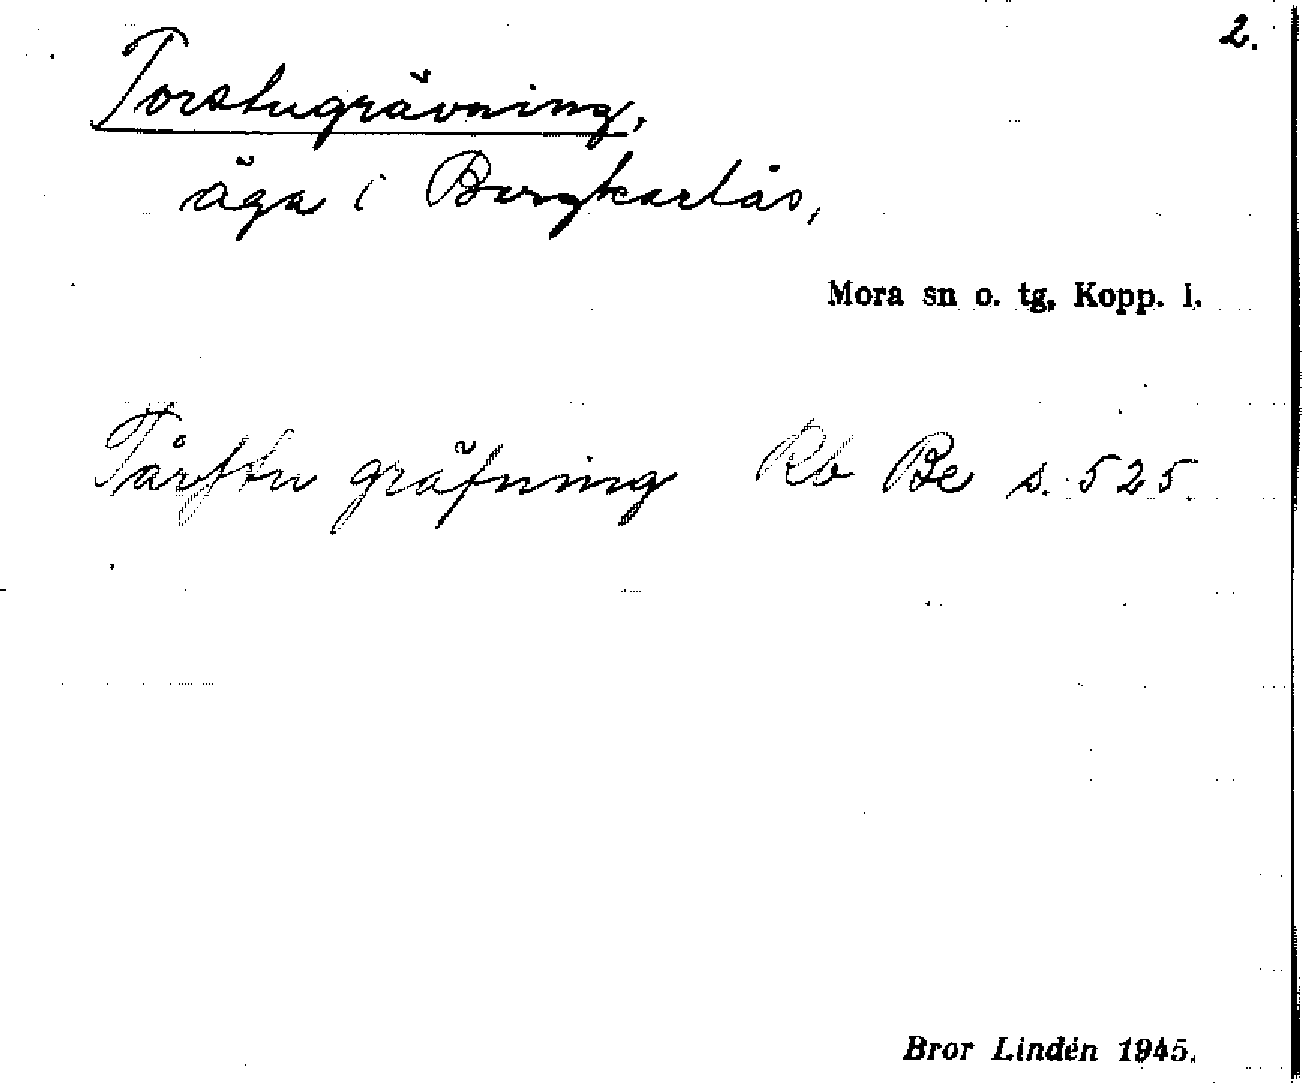 2.
Torstugrävning,
äga i Bergkarlås,
Mora sn o. tg. Kopp. l.
Tårstu gräfning Rb Be s. 525.
Bror Lindén 1945.